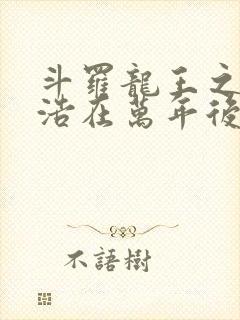 斗羅龍王之
浩在萬年後
不語樹